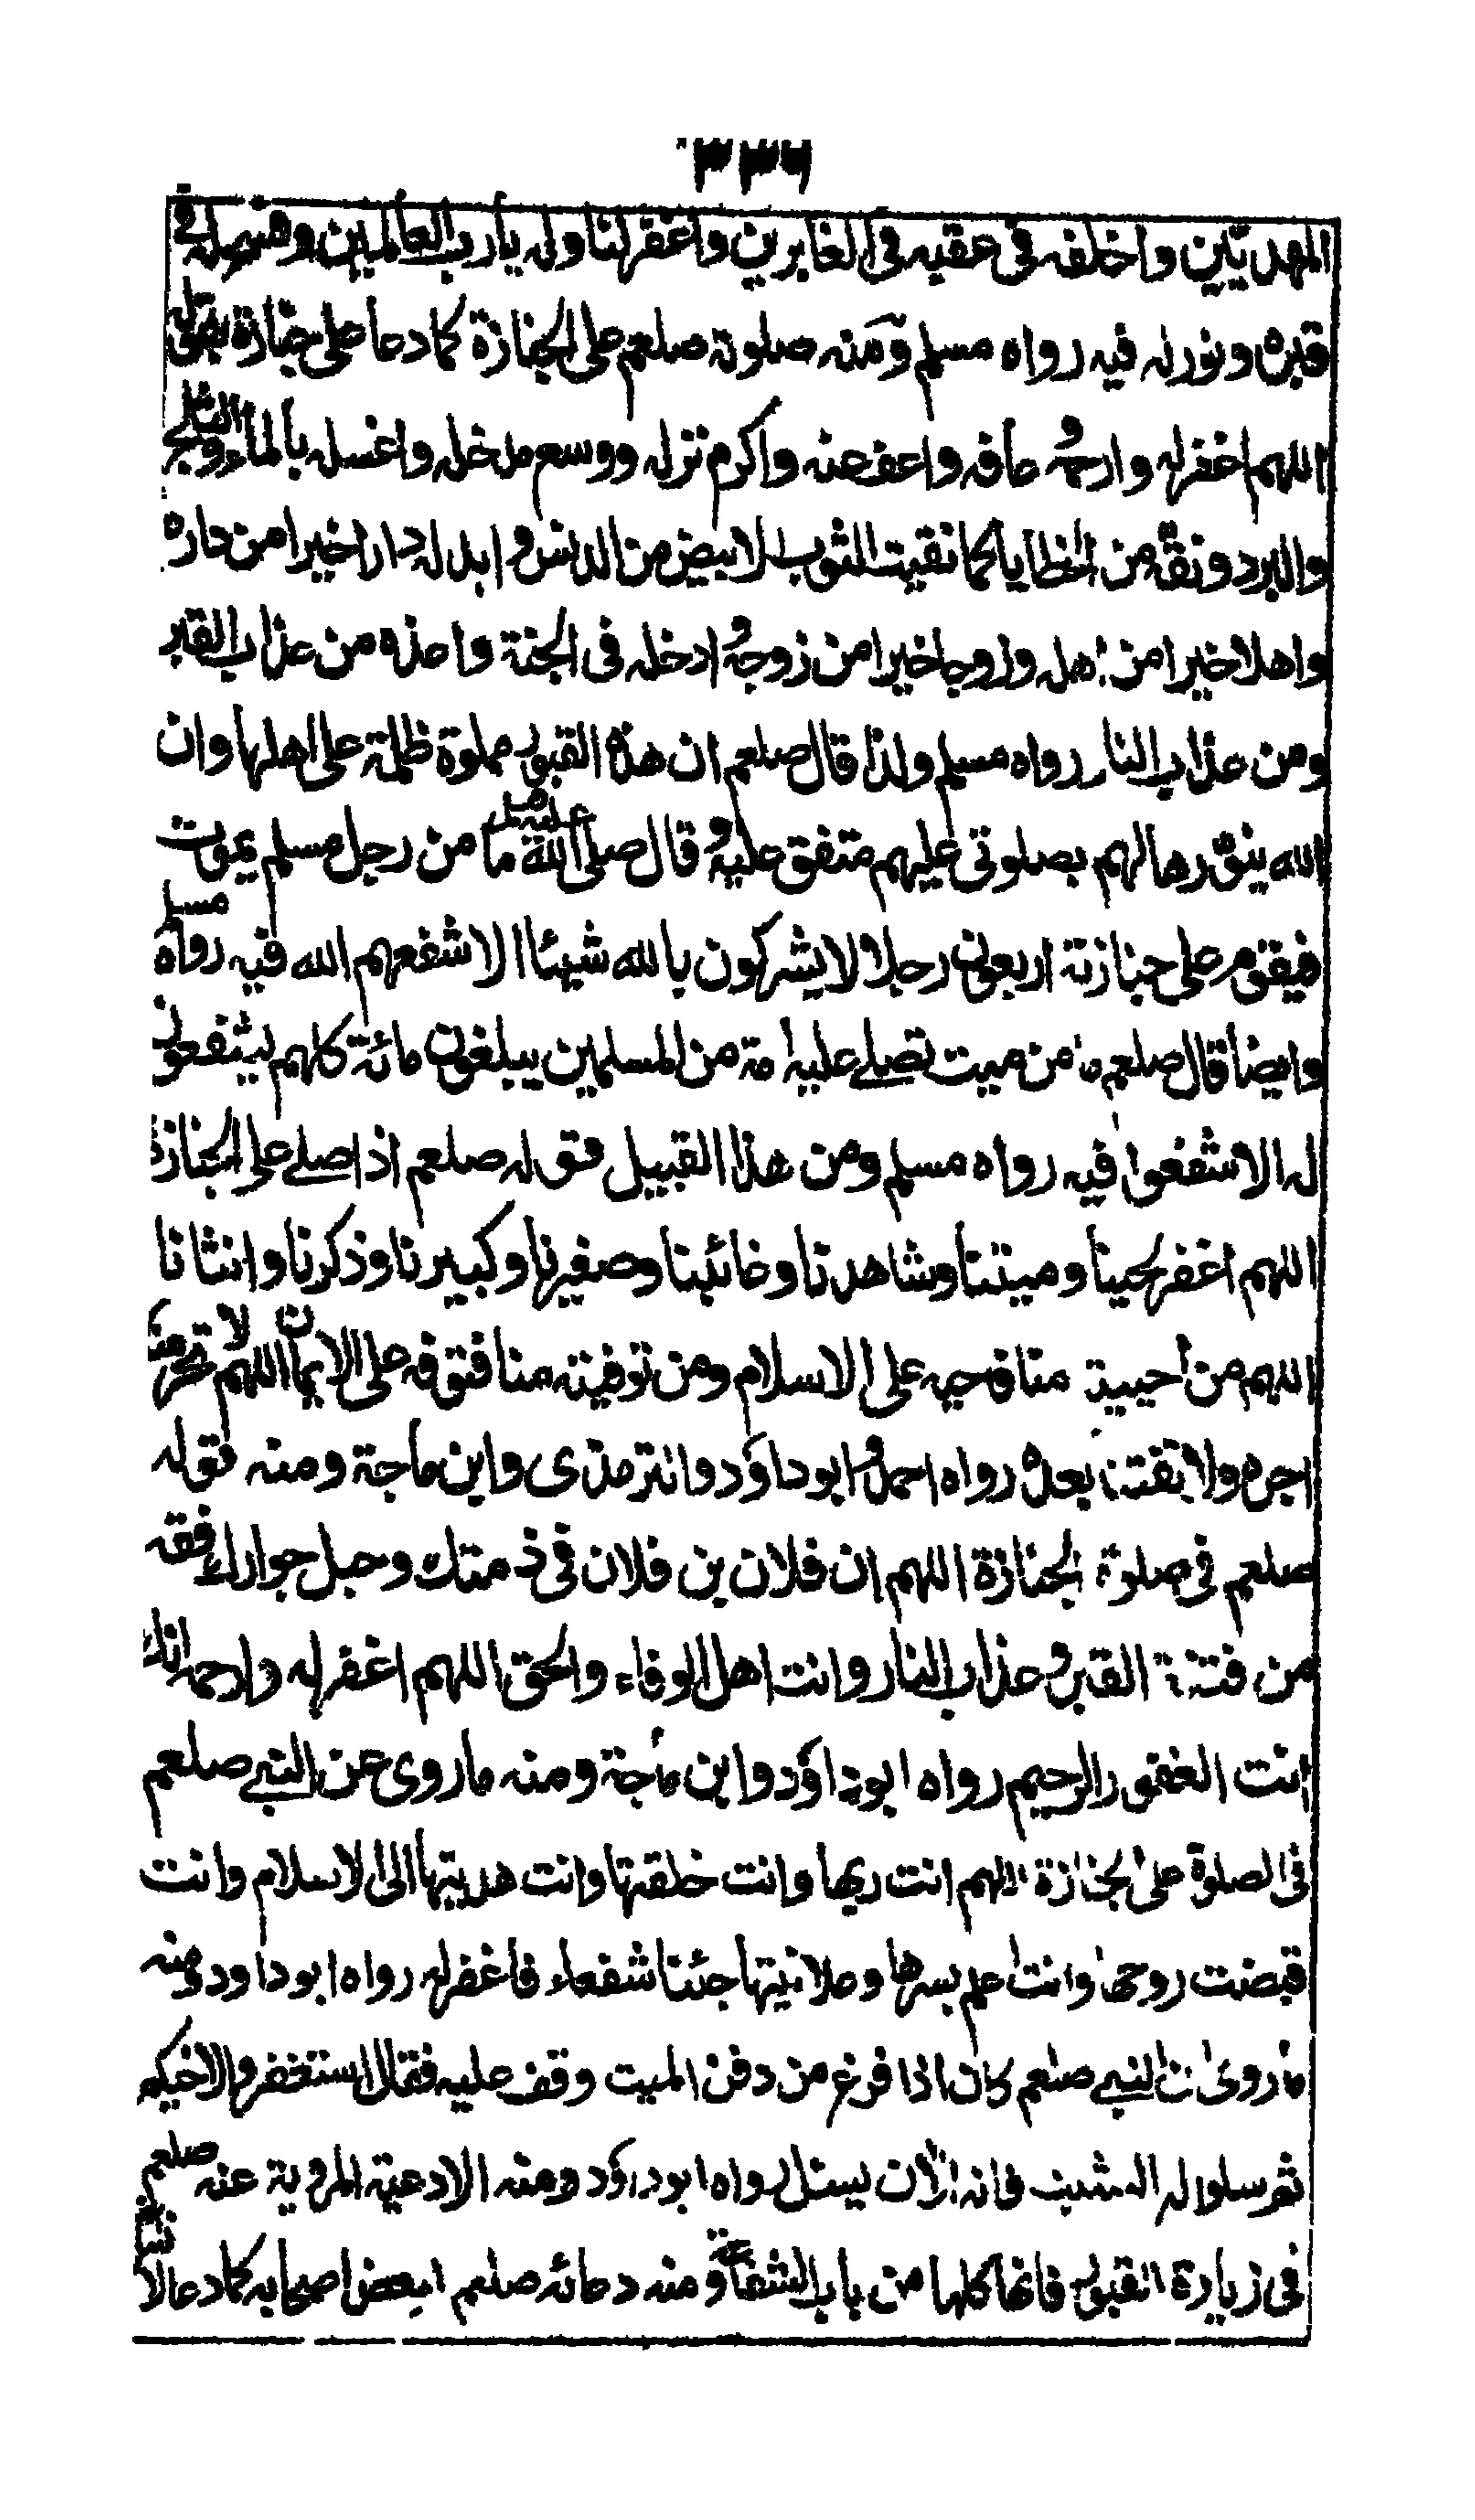 ٣٣٦
المهديين واخلفه فى عقبه فى الغابرين واغفر لنا وله يا رب العالمين وافسح له فى
قبره ونور له فيه رواه مسلم ومنه صلوته صلعم على الجنازة كما دعا على جنازة بقوله
اللهم اغفر له وارحمه عافه واعف عنه واكرم نزله ووسع مدخله واغسله بالماء والثلج
والبرد ونقه من الخطايا كما نقيت الثوب الابيض من الدنس و ابدله دارا خيرا من داره
واهلا خيرا من اهله وزوجا خيرا من زوجه و ادخله فى الجنة واعذه من عذاب القبر
ومن عذاب النار رواه مسلم ولذا قال صلعم ان هذه القبور مملوة ظلمة على اهلها وان
الله ينورها لهم بصلوتى عليهم متفق عليه و قال صلى الله عليه وسلم ما من رجل مسلم يموت
فيقوم على جنازته اربعون رجلا لا يشركون بالله شيئا الا شفعهم الله فيه رواه مسلم
وايضا قال صلعم ما من ميت تصلے عليه امة من المسلمين يبلغون مائة كلهم يشفعون
له الا شفعوا فيه رواه مسلم ومن هذا القبيل قوله صلعم اذا صلے على الجنازة
اللهم اغفر لحينا وميتنا وشاهدنا وغائبنا وصغيرنا وكبيرنا وذكرنا وانثانا
اللهم من احييته منا فاحيه على الاسلام ومن توفيته منا فتوفه على الايمان اللهم لا تحرمنا
اجره ولا تفتنا بعده رواه احمد و ابو داؤد والترمذى وابن ماجة ومنه قوله
صلعم فى صلوة الجنازة اللهم ان فلان بن فلان فى ذمتك وحبل جوارك فقه
من فتنة القبر و عذاب النار وانت اهل الوفاء والحق اللهم اغفر له وارحمه انك
انت الغفور الرحيم رواه ابو داؤد وابن ماجة ومنه ما روى عن النبے صلعم
فى الصلوة على الجنازة اللهم انت ربها وانت خلقتها وانت هديتها الى الاسلام وانت
قبضت روحها وانت اعلم بسرها وعلانيتها جئنا شفعاء فاغفر له رواه ابو داود ومنه
ما روى ان النبے صلعم كان اذا فرغ من دفن الميت وقف عليه فقال استغفروا لاخيكم
ثم سلوا له التثبت فانه الآن يسئل رواه ابو داؤد ومنه الادعية المروية عنه صلعم
فى زيارة القبور فانها كلها من باب الشفاعة و منه دعائه صلعم لبعض اصحابه كما دعا لا